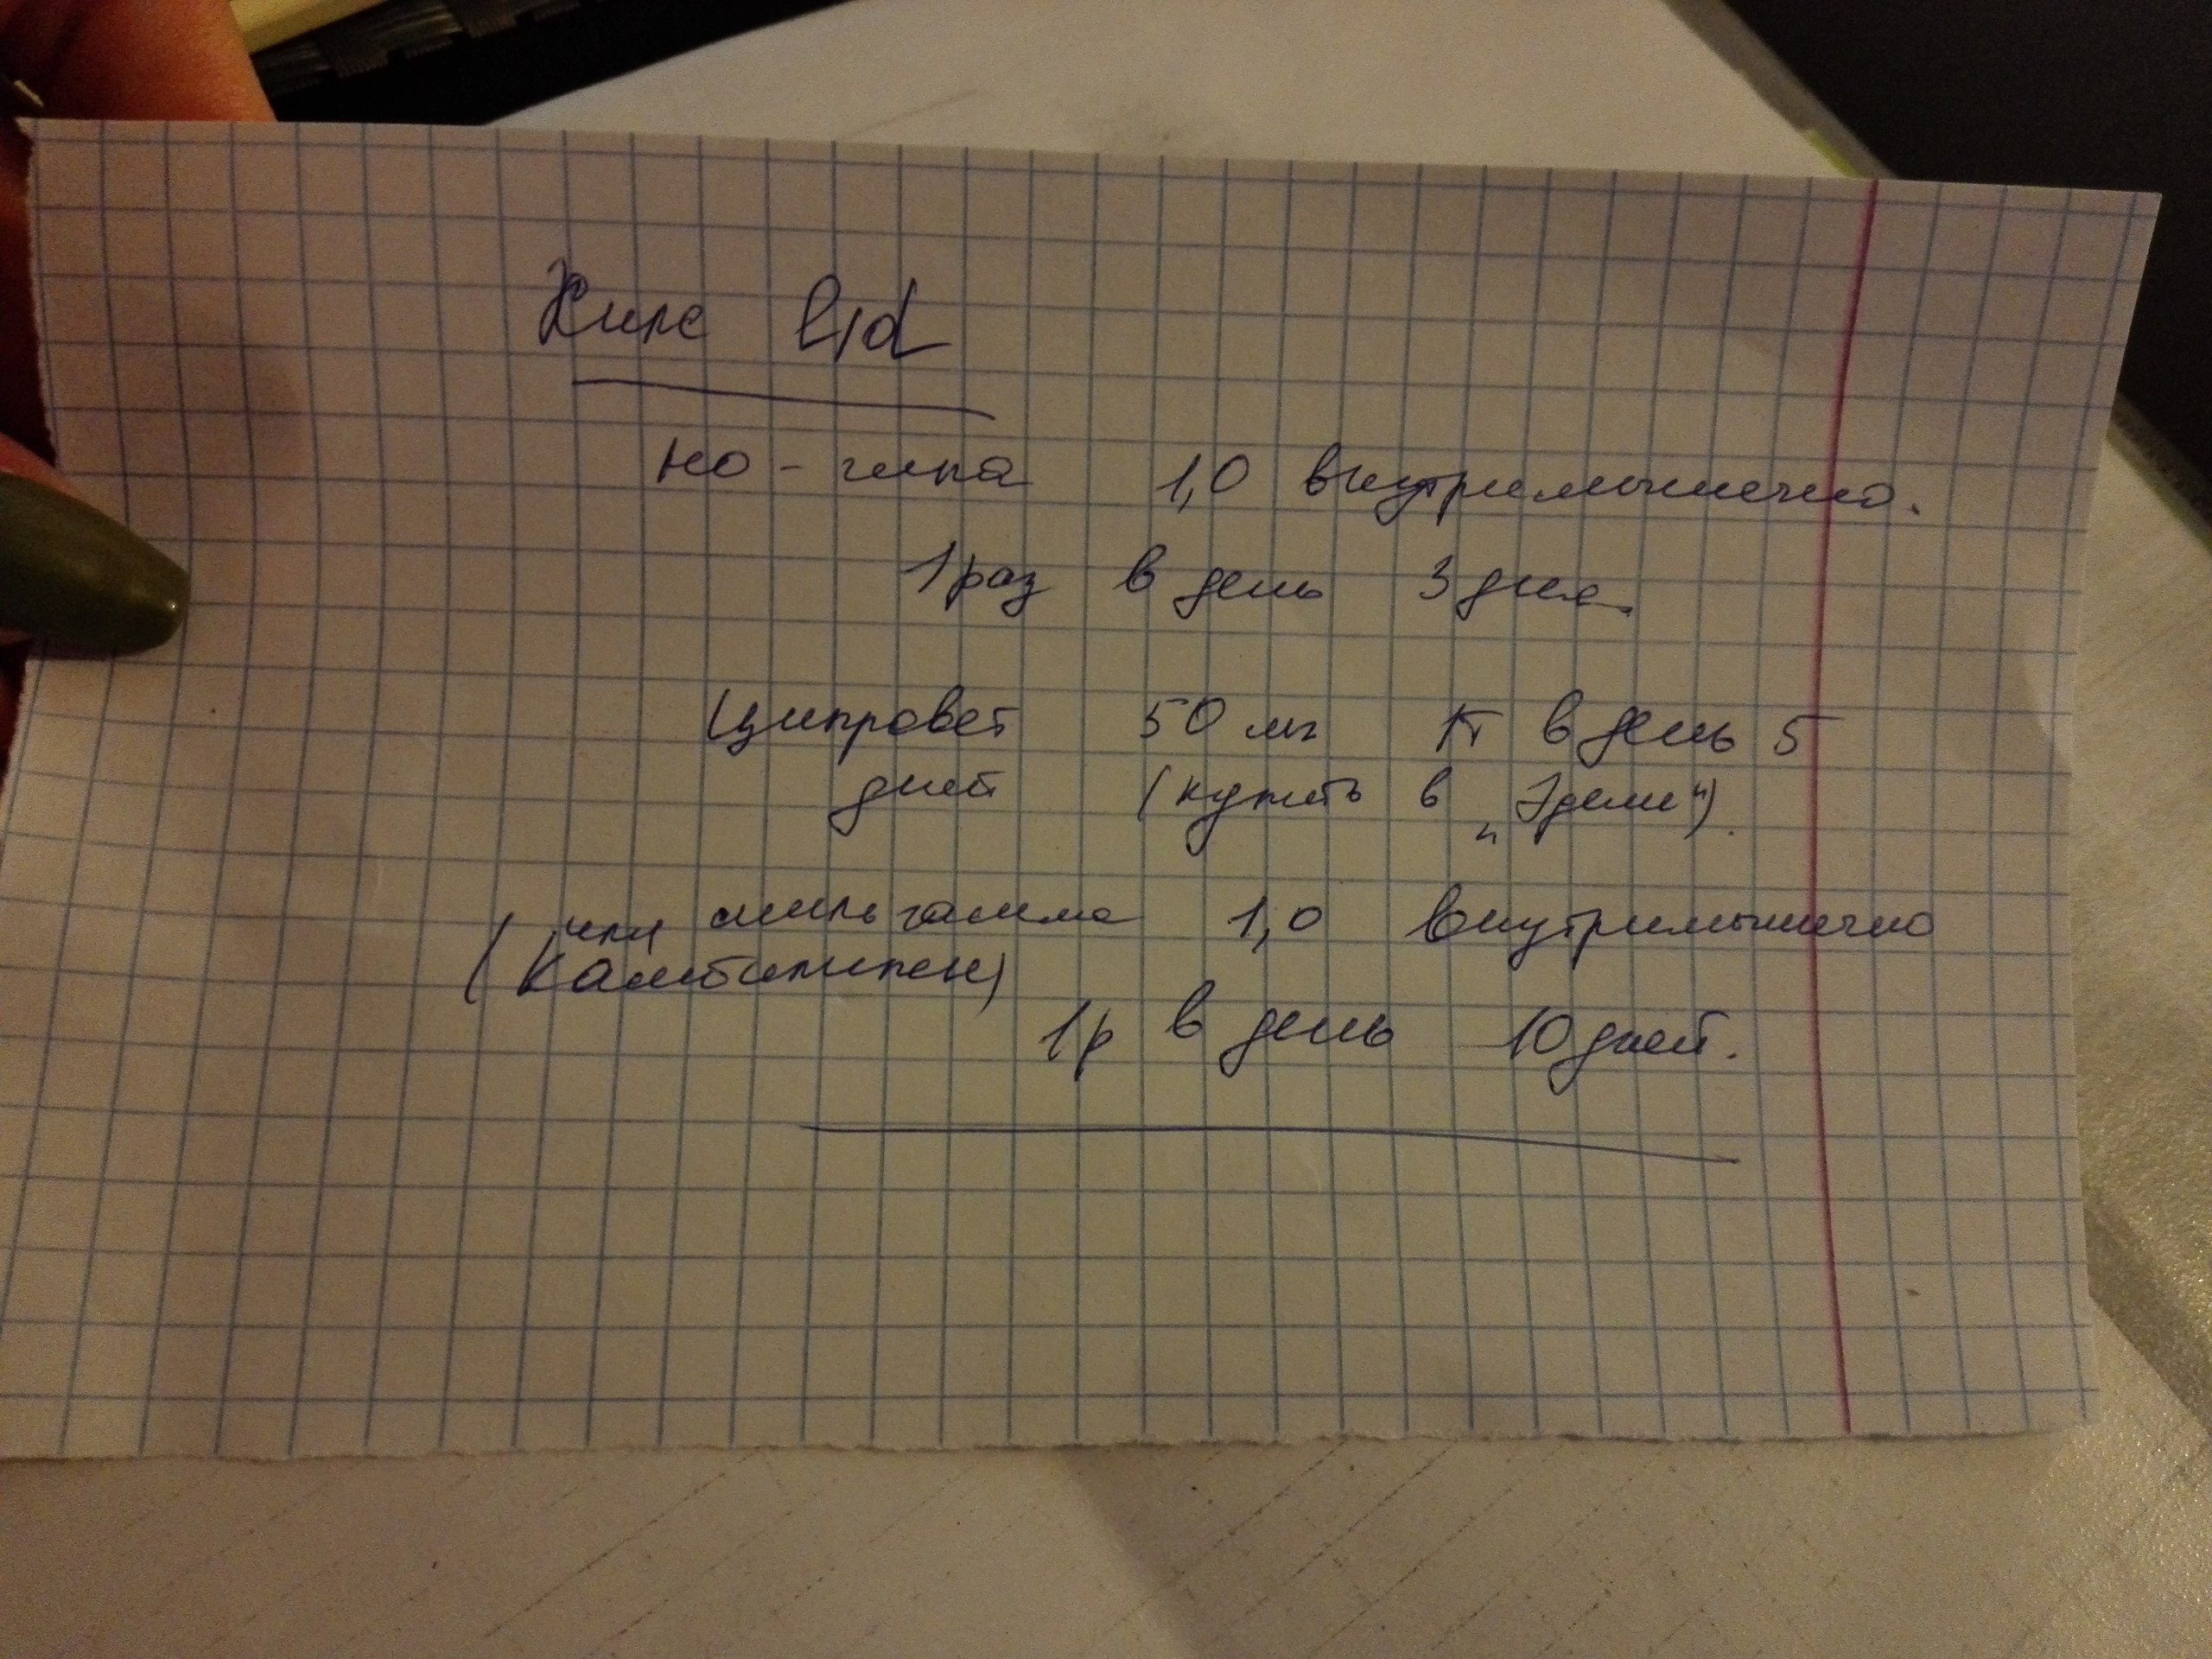 Хилс l/d
но-шпа 1,0 внутримышечно.
1 раз в день 3 дня.
Ципровет 50 мг 1т в день 5
дней (купить в „Эдеми“).
(или мильгамма 1,0 внутримышечно
Комбилипен)
1р в день 10 дней.